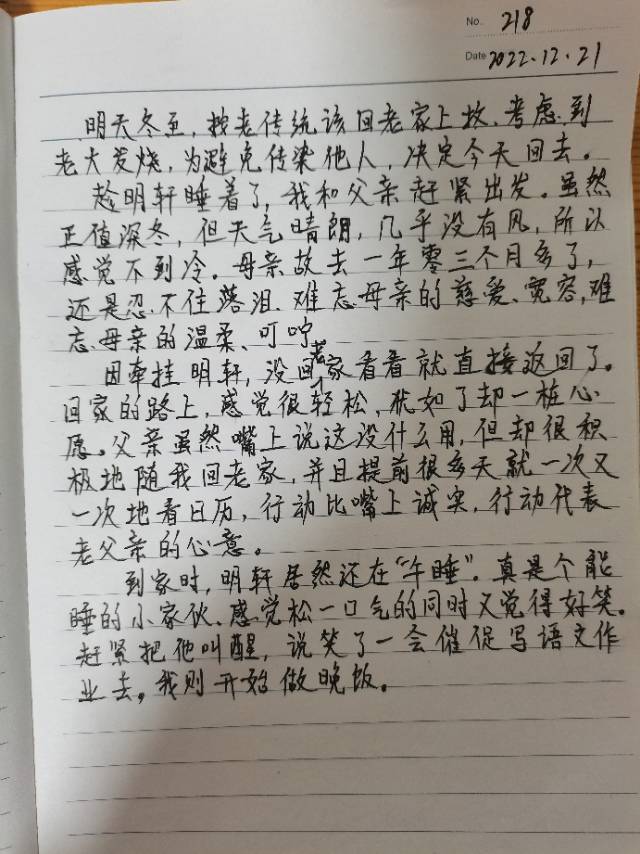 No. 218
Date 2022.12.21
明天冬至，按老传统该回老家上坟，考虑到
老大发烧，为避免传染他人，决定今天回去。
趁明轩睡着了，我和父亲赶紧出发。虽然
正值深冬，但天气晴朗，几乎没有风，所以
感觉不到冷。母亲故去一年零三个月多了，
还是忍不住落泪，难忘母亲的慈爱、宽容，难
忘母亲的温柔、叮咛。
因牵挂明轩，没回老家看看就直接返回了。
回家的路上，感觉很轻松，犹如了却一桩心
愿。父亲虽然嘴上说这没什么用，但却很积
极地随我回老家，并且提前很多天就一次又
一次地看日历，行动比嘴上诚实，行动代表
老父亲的心意。
到家时，明轩居然还在“午睡”。真是个能
睡的小家伙、感觉松一口气的同时又觉得好笑。
赶紧把他叫醒，说笑了一会催促写语文作
业去。我则开始做晚饭。